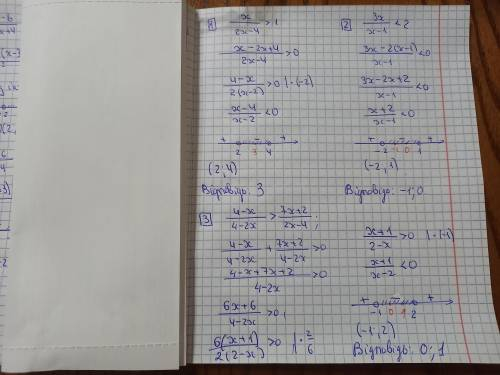 1
x/(2x-4) > 1
(x-2x+4)/(2x-4) > 0
(4-x)/(2(x-2)) > 0 | · (-2)
(x-4)/(x-2) < 0
+ - +
2 3 4
(2; 4)
Відповідь: 3
2
3x/(x-1) < 2
(3x-2(x-1))/(x-1) < 0
(3x-2x+2)/(x-1) < 0
(x+2)/(x-1) < 0
+ - +
-2 -1 0 1
(-2; 1)
Відповідь: -1; 0
3
(4-x)/(4-2x) > (7x+2)/(2x-4) ;
(4-x)/(4-2x) + (7x+2)/(4-2x) > 0
(4-x+7x+2)/(4-2x) > 0
(6x+6)/(4-2x) > 0;
6(x+1)/(2(2-x)) > 0 | · 2/6
(x+1)/(2-x) > 0 | · (-1)
(x+1)/(x-2) < 0
+ - +
-1 0 1 2
(-1; 2)
Відповідь: 0; 1